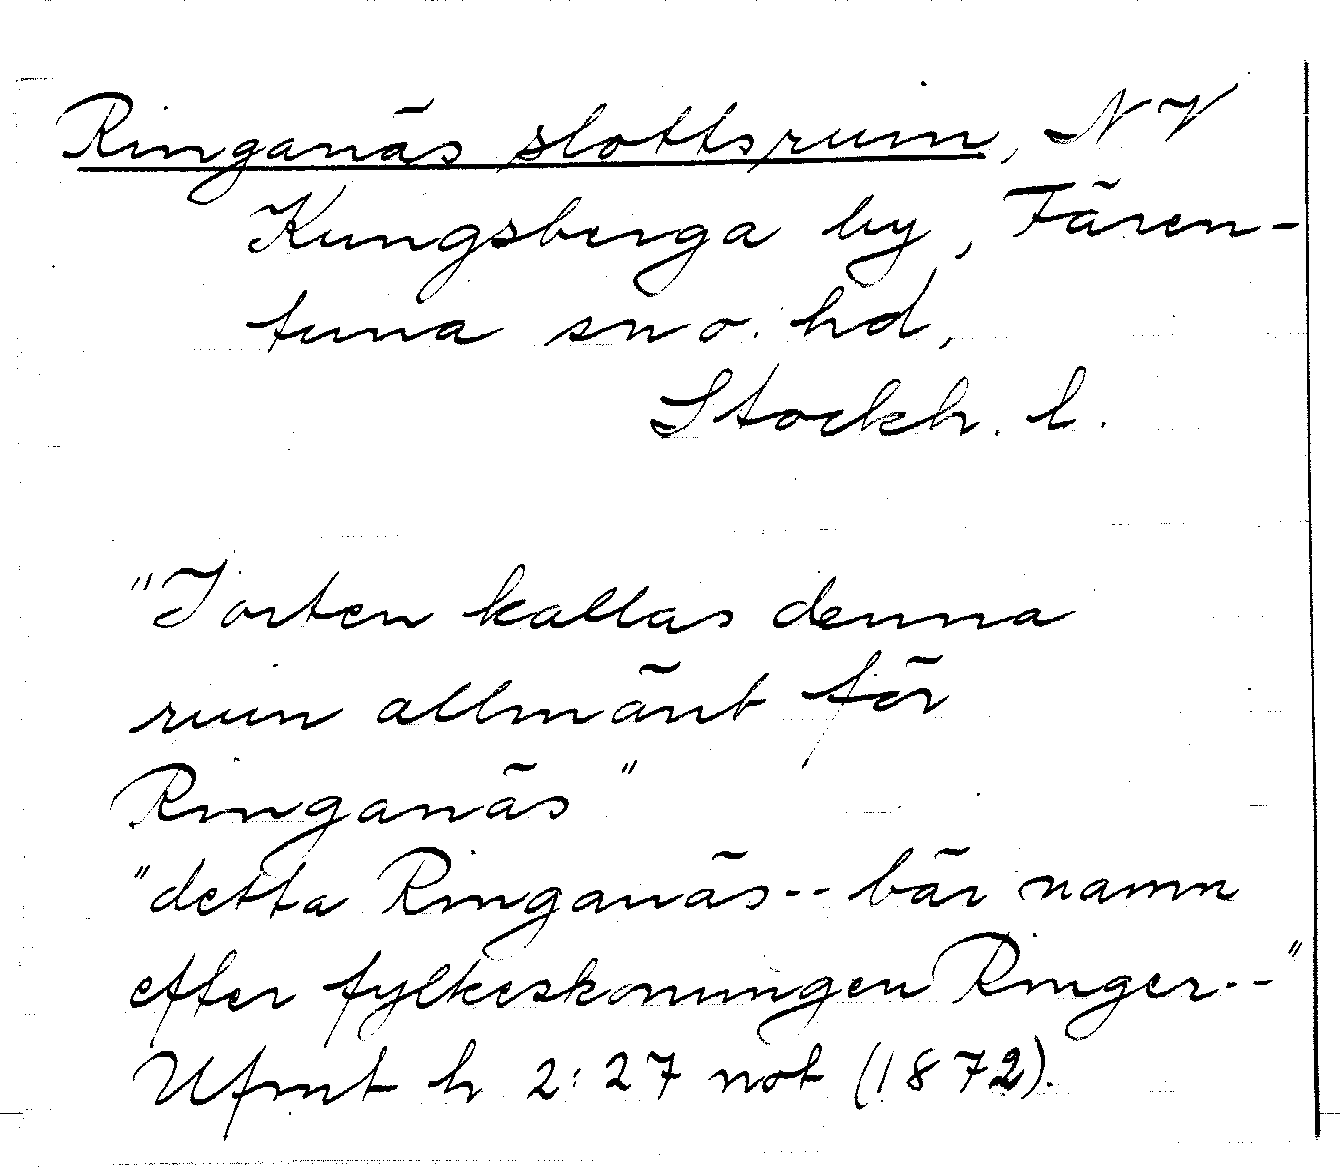 Ringanäs slottsruin, NV
Kungsberga by, Fären-
tuna sn o. hd,
Stockh. l.
"I orten kallas denna
ruin allmänt för
Ringanäs"
"detta Ringanäs -- bär namn
efter fylkeskonungen Ringer --"
Ufmt h 2:27 not (1872).